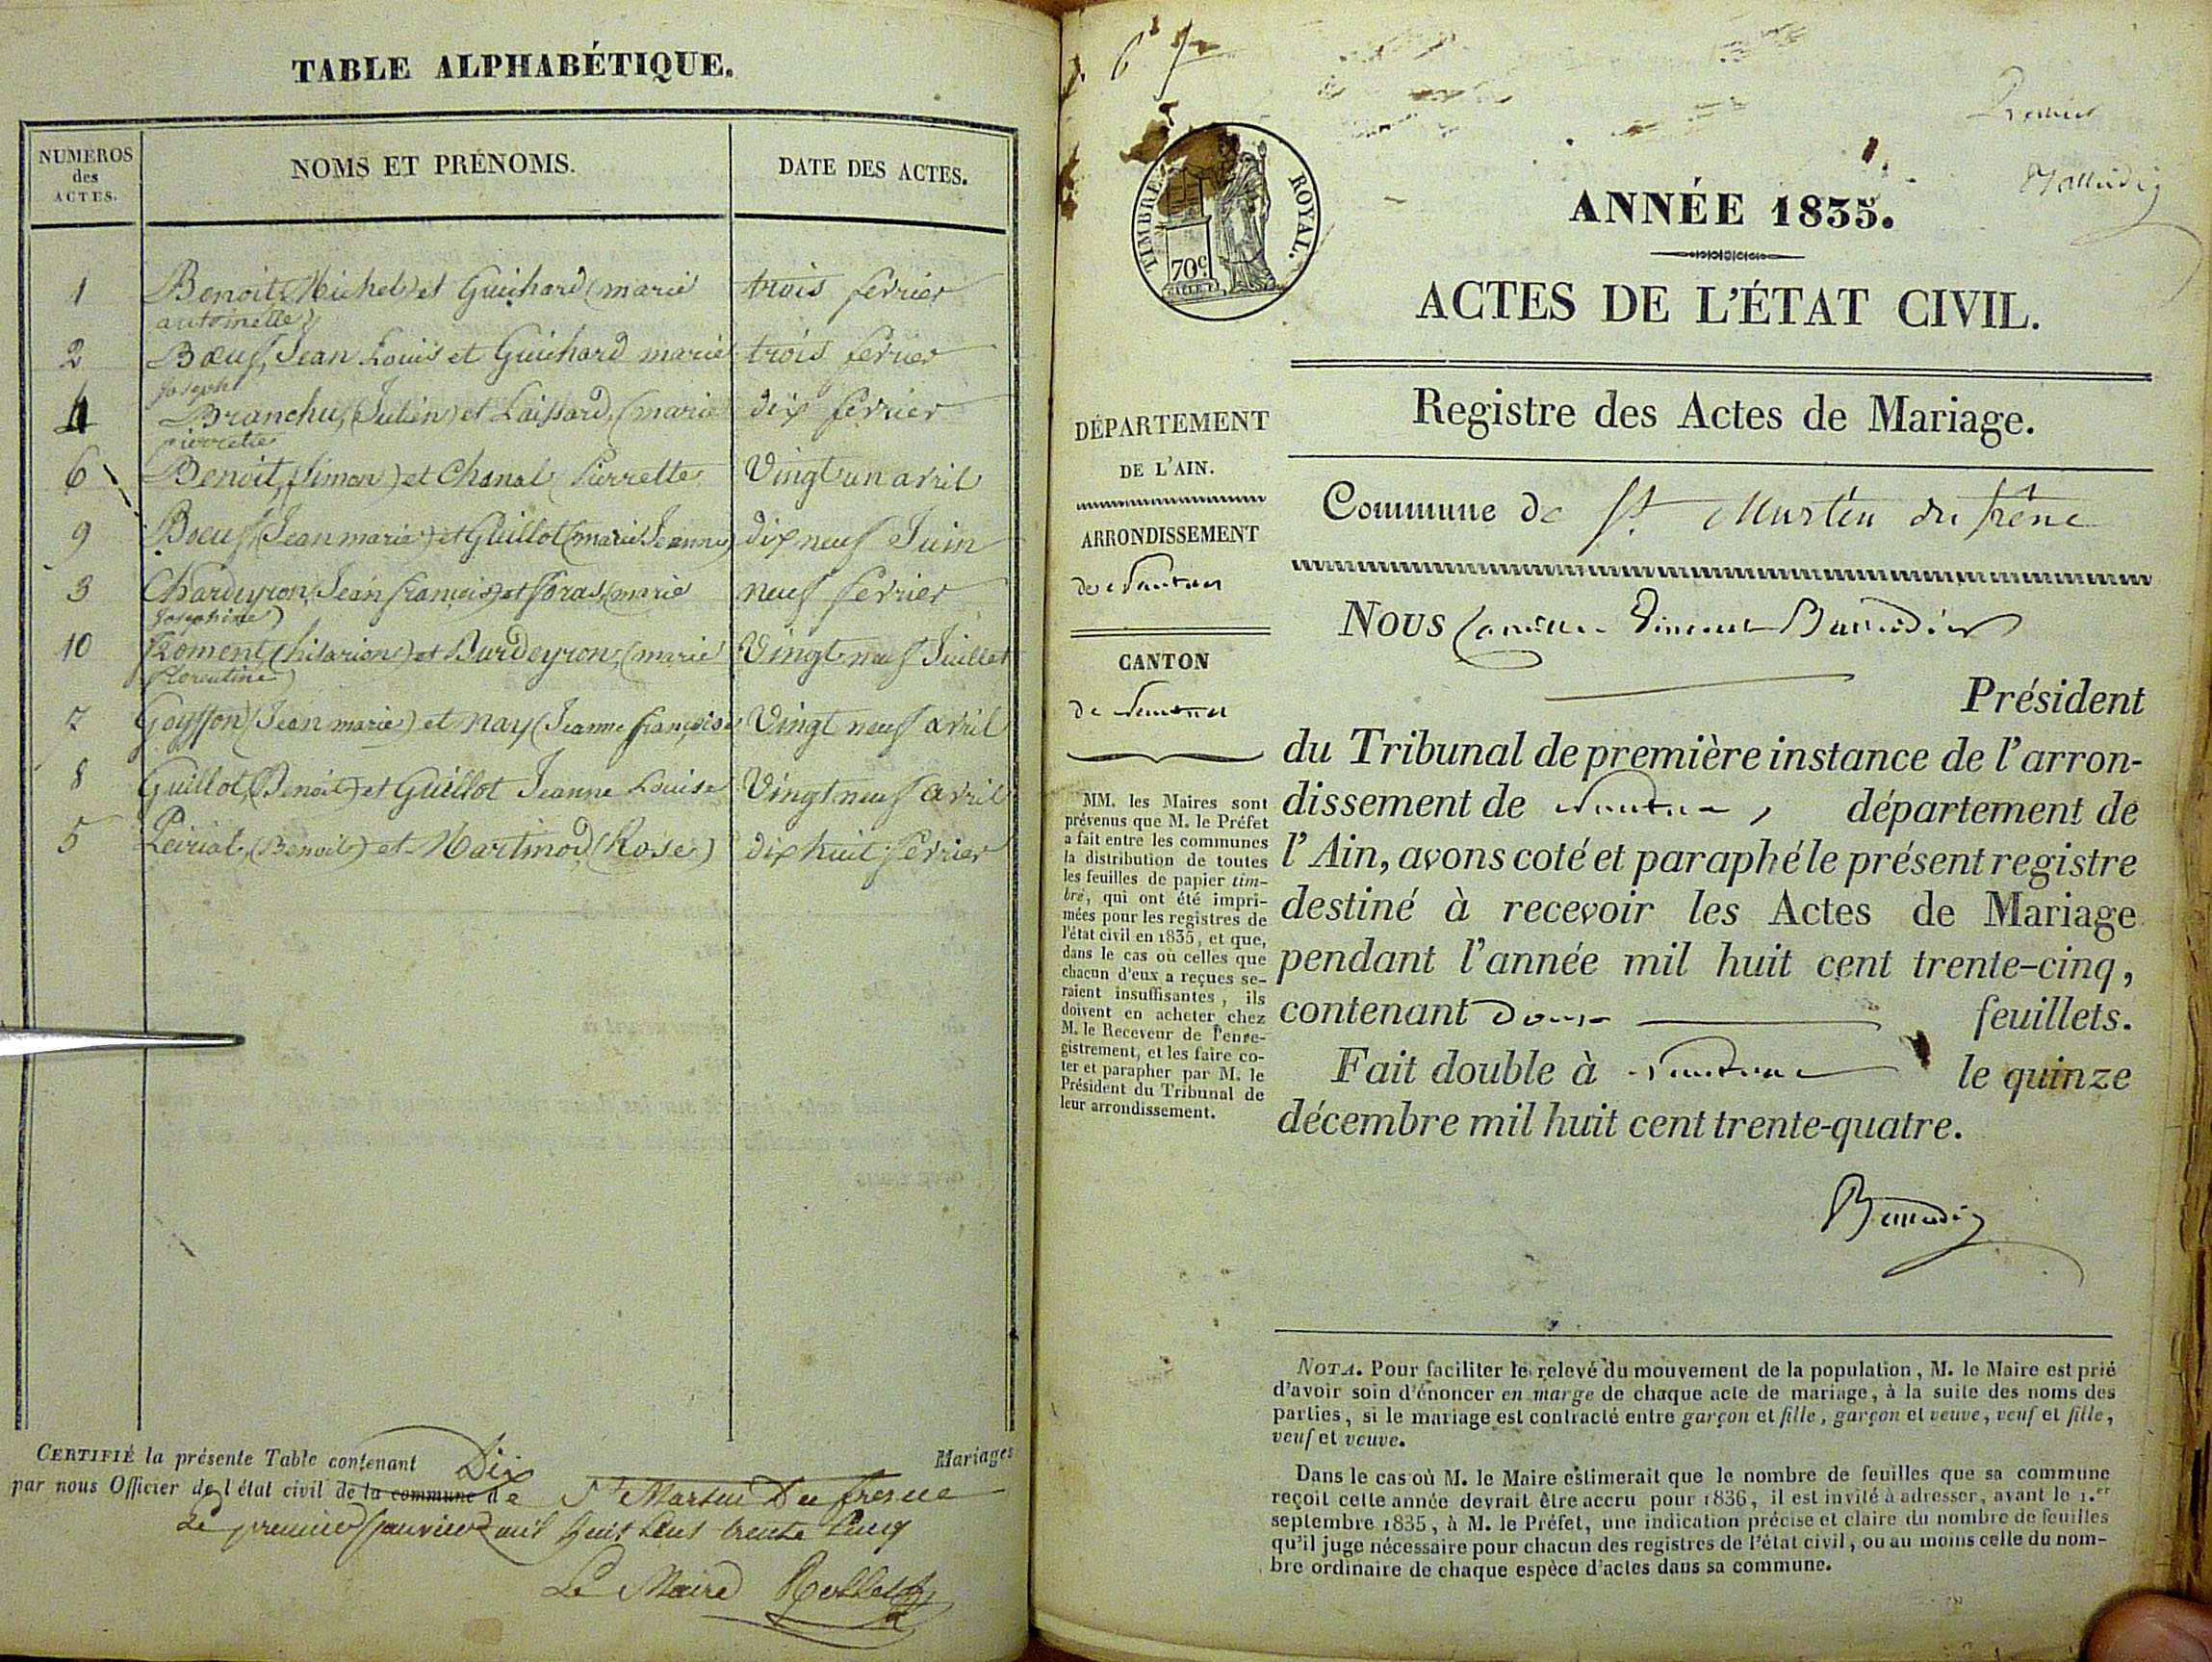 TABLE ALPHABÉTIQUE.
NUMÉROS
des
ACTES.
NOMS ET PRÉNOMS.
DATE DES ACTES.
1 Benoit (Michel) et Guichard (marie trois fevrier
antoinette)
2 Bœuf, Jean Louis et Guichard marie trois fevrier
Joseph
4 Branchu, (Julien) et Laissard, (marie dix fevrier
pierrette
6 Benoit, (Simon) et Chanal Pierrette Vingt un avril
9 Bœuf (Jean marie) et Guillot (marie Jeanne) dix neuf Juin
3 Chardeyron (Jean françois) et Foras (marie neuf fevrier
Josephine)
10 Froment, (hilarion) et Burdeyron, (marie Vingt neuf Juillet
florentine)
7 Goyffon (Jean marie) et nay (Jeanne françoise Vingt neuf avril
8 Guillot, (Benoit) et Guillot Jeanne Louise Vingt neuf avril
5 (Benoit) et Martinod (Rose) dix huit fevrier
CERTIFIÉ la présente Table contenant Dix Mariages
par nous Officier de l'état civil de la commune de St Martin Du fresne
Le premier janvier mil huit cent trente cinq
Le Maire
TIMBRE ROYAL.
70c
ANNÉE 1835.
ACTES DE L'ÉTAT CIVIL.
Registre des Actes de Mariage.
DÉPARTEMENT
DE L'AIN.
ARRONDISSEMENT
de Nantua
CANTON
de Nantua
MM. les Maires sont
prévenus que M. le Préfet
a fait entre les communes
la distribution de toutes
les feuilles de papier tim-
bré, qui ont été impri-
mées pour les registres de
l'état civil en 1835, et que,
dans le cas où celles que
chacun d'eux a reçues se-
raient insuffisantes, ils
doivent en acheter chez
M. le Receveur de l'enre-
gistrement, et les faire co-
ter et parapher par M. le
Président du Tribunal de
leur arrondissement.
Commune de St Martin du frêne
Nous
Président
du Tribunal de première instance de l'arron-
dissement de Nantua, département de
l'Ain, avons coté et paraphé le présent registre
destiné à recevoir les Actes de Mariage
pendant l'année mil huit cent trente-cinq,
contenant douze feuillets.
Fait double à Nantua le quinze
décembre mil huit cent trente-quatre.
NOTA. Pour faciliter le relevé du mouvement de la population, M. le Maire est prié
d'avoir soin d'énoncer en marge de chaque acte de mariage, à la suite des noms des
parties, si le mariage est contracté entre garçon et fille, garçon et veuve, veuf et fille,
veuf et veuve.
Dans le cas où M. le Maire estimerait que le nombre de feuilles que sa commune
reçoit cette année devrait être accru pour 1836, il est invité à adresser, avant le 1.er
septembre 1835, à M. le Préfet, une indication précise et claire du nombre de feuilles
qu'il juge nécessaire pour chacun des registres de l'état civil, ou au moins celle du nom-
bre ordinaire de chaque espèce d'actes dans sa commune.